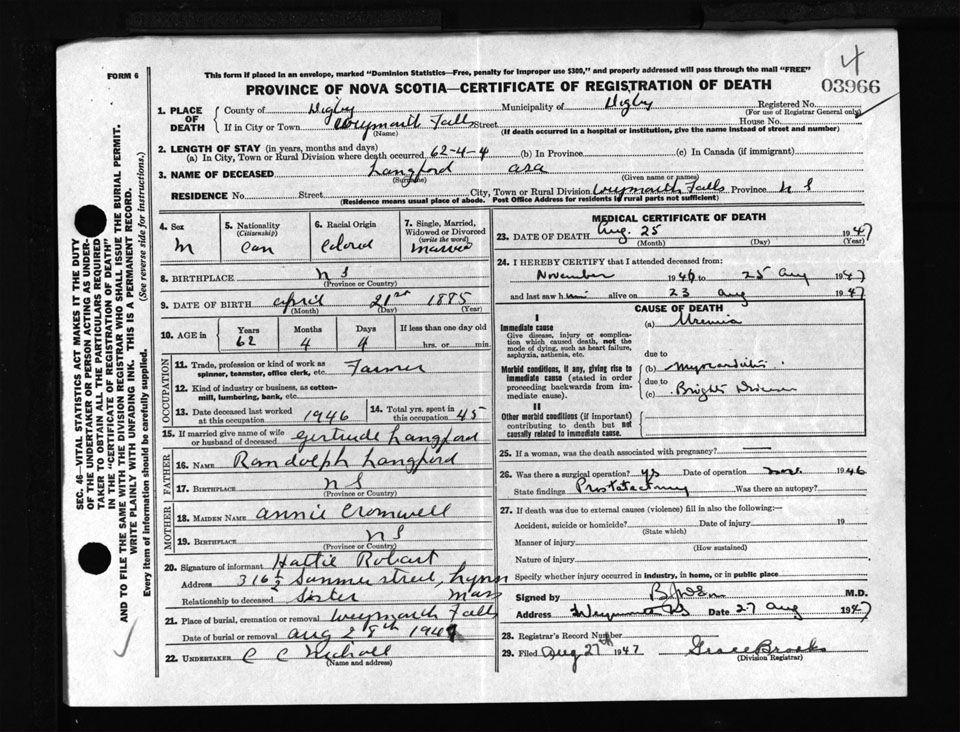 4
FORM 6
This form if placed in an envelope, marked "Dominion Statistics—Free, penalty for improper use $300," and properly addressed will pass through the mail "FREE"
03966
PROVINCE OF NOVA SCOTIA—CERTIFICATE OF REGISTRATION OF DEATH
SEC. 46—VITAL STATISTICS ACT MAKES IT THE DUTY
OF THE UNDERTAKER OR PERSON ACTING AS UNDER-
TAKER TO OBTAIN ALL THE PARTICULARS REQUIRED
IN THE "CERTIFICATE OF REGISTRATION OF DEATH"
AND TO FILE THE SAME WITH THE DIVISION REGISTRAR WHO SHALL ISSUE THE BURIAL PERMIT.
WRITE PLAINLY WITH UNFADING INK. THIS IS A PERMANENT RECORD.
Every item of information should be carefully supplied. (See reverse side for instructions.)
1. PLACE OF DEATH
County of Digby Municipality of Digby Registered No.
(For use of Registrar General only)
If in City or Town Weymouth Falls Street House No.
(Name) (If death occurred in a hospital or institution, give the name instead of street and number)
2. LENGTH OF STAY (in years, months and days)
(a) In City, Town or Rural Division where death occurred 62-4-4 (b) In Province (c) In Canada (if immigrant)
3. NAME OF DECEASED Langford Asa
(Surname) (Given name or names)
RESIDENCE No. Street City, Town or Rural Division Weymouth Falls Province N S
(Residence means usual place of abode. Post Office Address for residents in rural parts not sufficient)
4. Sex
M
5. Nationality
(Citizenship)
Can
6. Racial Origin
Colored
7. Single, Married, Widowed or Divorced
(write the word)
Married
8. BIRTHPLACE N S
(Province or Country)
9. DATE OF BIRTH April 21st 1885
(Month) (Day) (Year)
10. AGE in Years Months Days If less than one day old
62 4 4 hrs. or min.
OCCUPATION
11. Trade, profession or kind of work as spinner, teamster, office clerk, etc. Farmer
12. Kind of industry or business, as cotton-mill, lumbering, bank, etc.
13. Date deceased last worked at this occupation 1946
14. Total yrs. spent in this occupation 45
15. If married give name of wife or husband of deceased Gertrude Langford
FATHER
16. NAME Randolph Langford
17. BIRTHPLACE N S
(Province or Country)
MOTHER
18. MAIDEN NAME Annie Cromwell
19. BIRTHPLACE N S
(Province or Country)
20. Signature of informant Hattie Robart
Address 316½ Summer street, Lynn
Relationship to deceased Sister Mass
21. Place of burial, cremation or removal Weymouth Falls
Date of burial or removal Aug 28th 1947
22. UNDERTAKER C C Nichall
(Name and address)
MEDICAL CERTIFICATE OF DEATH
23. DATE OF DEATH Aug. 25 1947
(Month) (Day) (Year)
24. I HEREBY CERTIFY that I attended deceased from:
November 1946 to 25 Aug 1947
and last saw him alive on 23 Aug 1947
CAUSE OF DEATH
I
Immediate cause
Give disease, injury or complication which caused death, not the mode of dying, such as heart failure, asphyxia, asthenia, etc.
(a) Uremia
due to
Morbid conditions, if any, giving rise to immediate cause (stated in order proceeding backwards from immediate cause).
(b) Myocarditis
due to
(c) Brights Disease
II
Other morbid conditions (if important) contributing to death but not causally related to immediate cause.
25. If a woman, was the death associated with pregnancy?
26. Was there a surgical operation? yes Date of operation Nov. 1946
State findings Prostatectomy Was there an autopsy?
27. If death was due to external causes (violence) fill in also the following:—
Accident, suicide or homicide? Date of injury 19
(State which)
Manner of injury
(How sustained)
Nature of injury
Specify whether injury occurred in industry, in home, or in public place
Signed by M.D.
Address Weymouth NS Date 27 Aug 1947
28. Registrar's Record Number
29. Filed Aug 27th 1947 Grace Brooks
(Division Registrar)